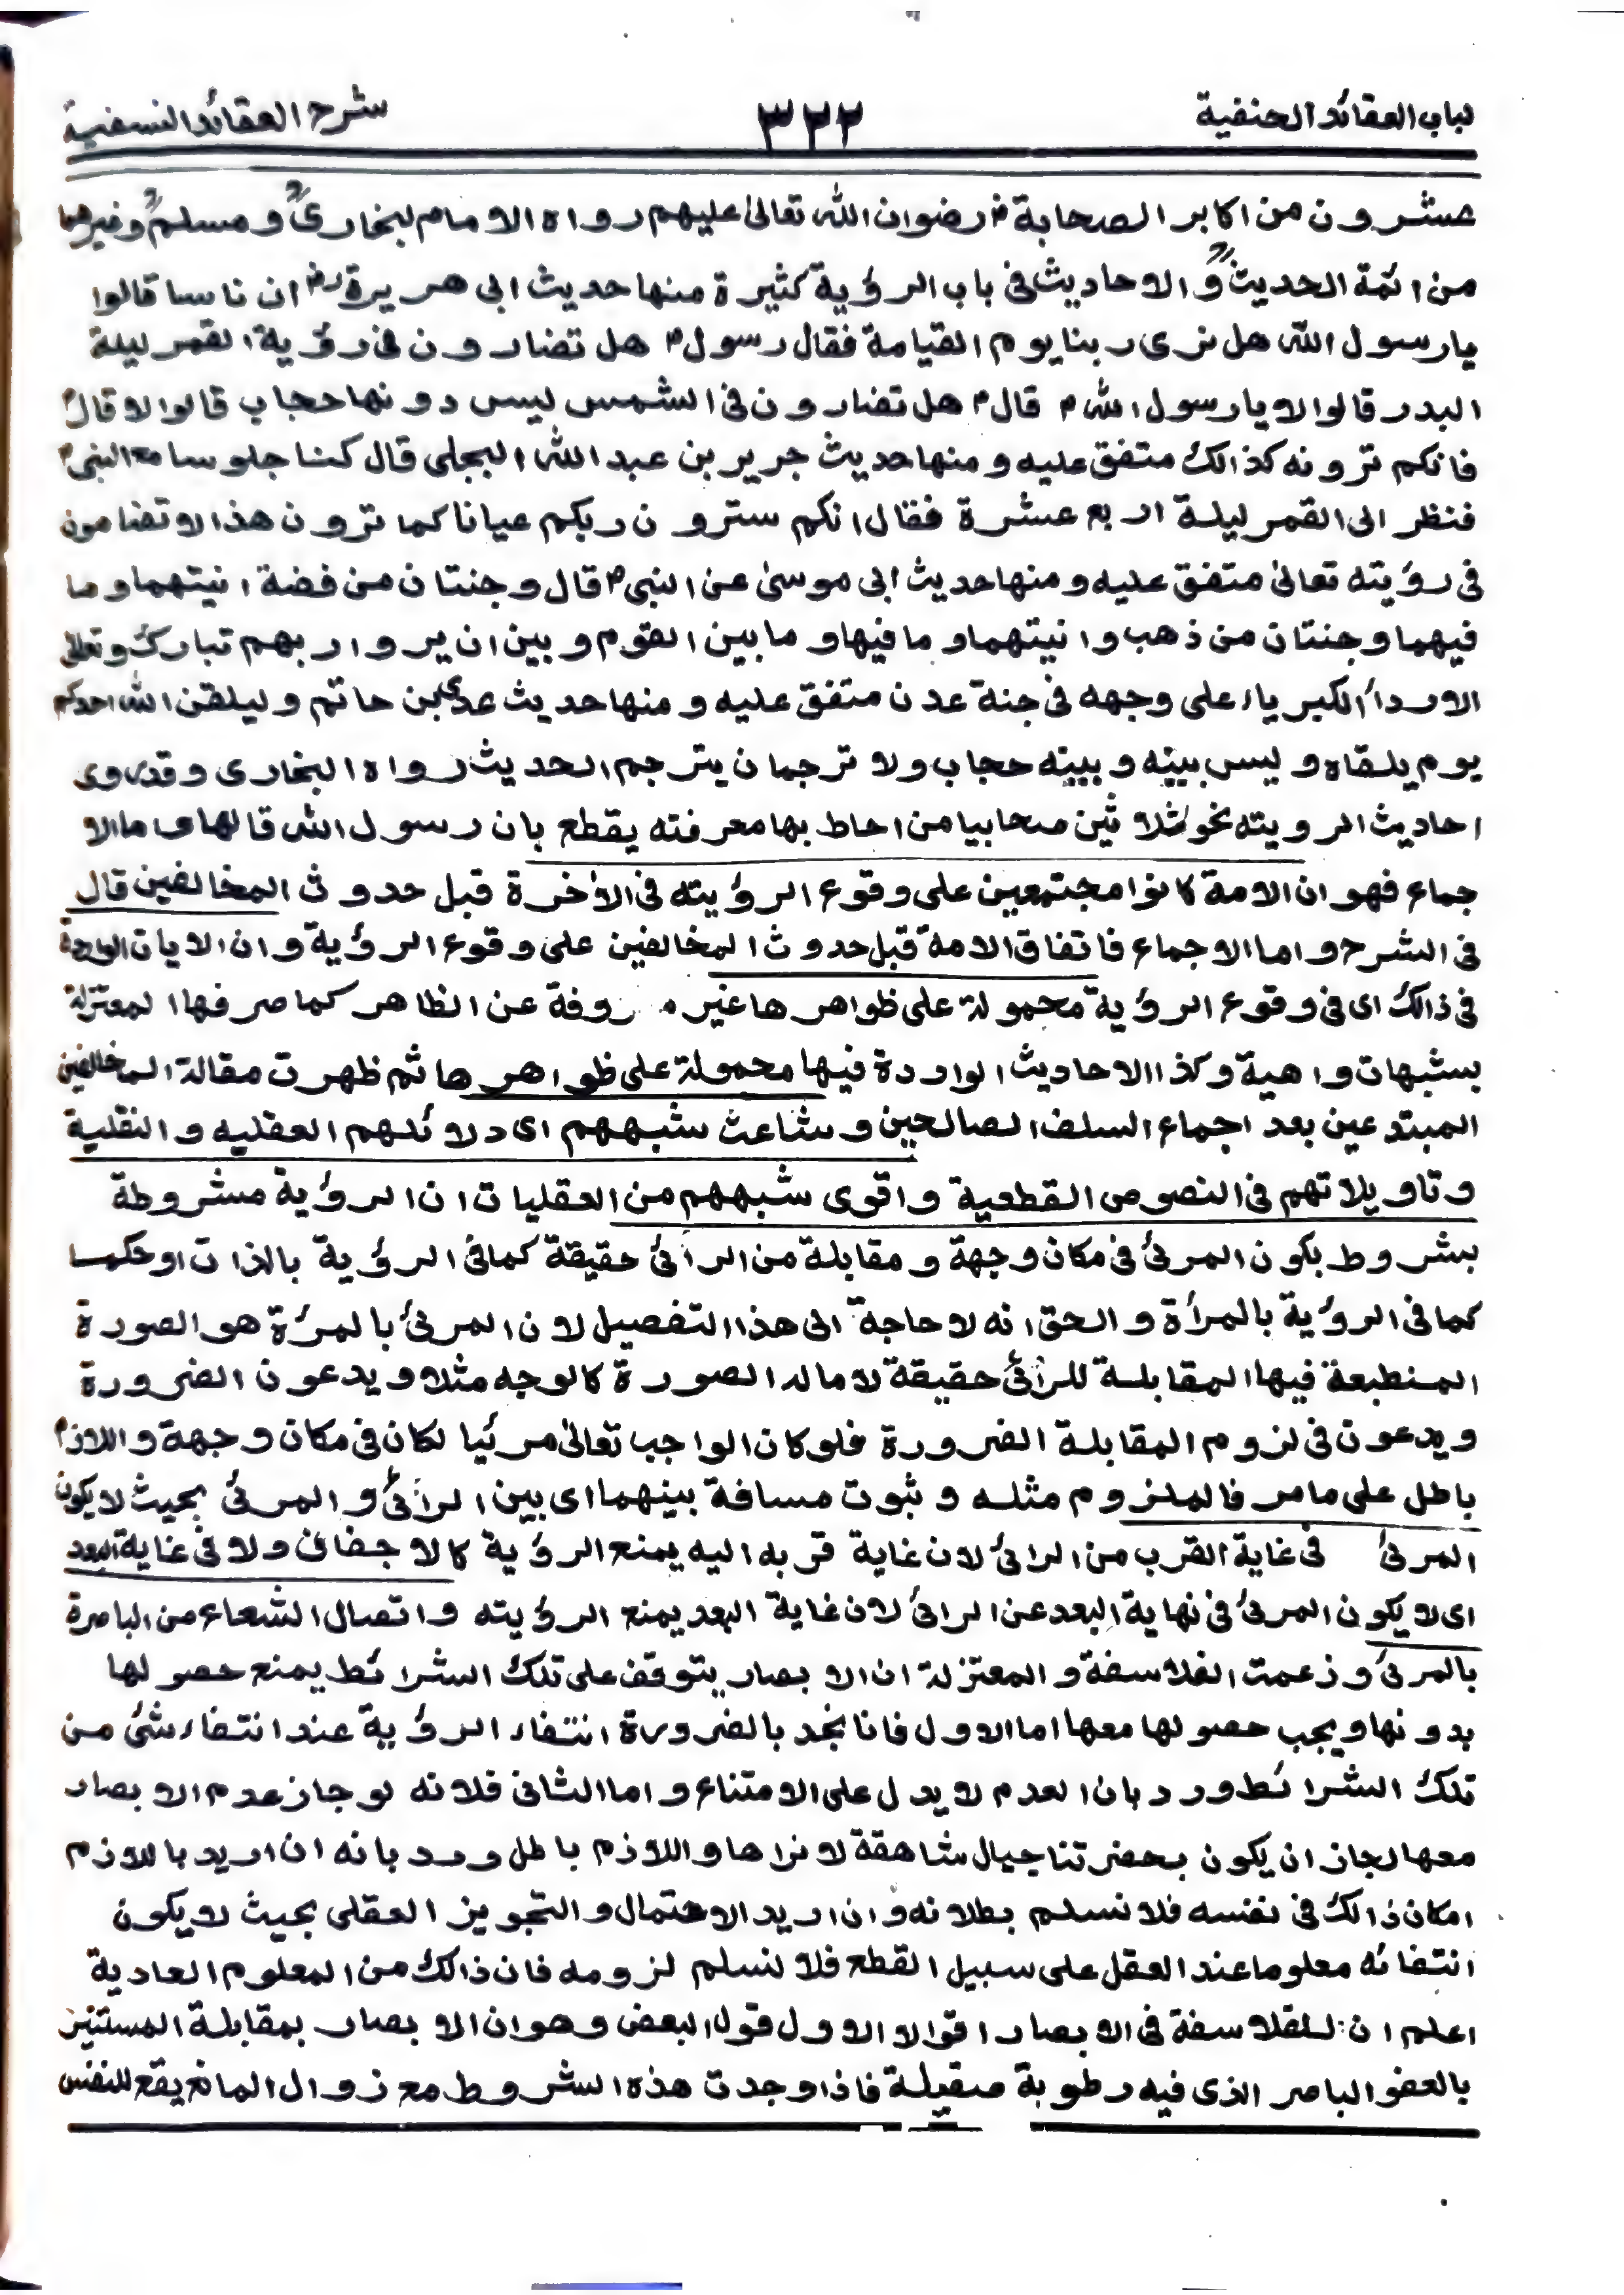 لباب العقائد الحنفية ٣٢٢ شرح العقائد النسفية
عشرون من اكابر الصحابة رضوان الله تعالىٰ عليهم رواه الامام لبخاریؒ ومسلمؒ وغيرهما
من ائمة الحديثؒ والاحاديث فی باب الرؤية كثيرة منها حديث ابی هريرةؓ ان ناسا قالوا
يارسول الله هل نری ربنا يوم القيامة فقال رسولؐ هل تضارون فی رؤية القمر ليلة
البدر قالوا لا يارسول اللهؐ قالؐ هل تضارون فی الشمس ليس دونها حجاب قالوا لا قالؐ
فانكم ترونه كذالك متفق عليه ومنها حديث جرير بن عبد الله البجلی قال كنا جلوسا مع النبیؐ
فنظر الی القمر ليلة اربع عشرة فقال انكم سترون ربكم عيانا كما ترون هذا لا تضامون
فی رؤيته تعالیٰ متفق عليه ومنها حديث ابی موسیٰ عن النبیؐ قال وجنتان من فضة انيتهما وما
فيهما وجنتان من ذهب وانيتهما وما فيها وما بين القوم وبين ان يروا ربهم تبارك وتعالیٰ
الا رداء الكبرياء علی وجهه فی جنة عدن متفق عليه ومنها حديث عدی بن حاتم وليلقن الله احدكم
يوم يلقاه وليس بينه وبينه حجاب ولا ترجمان يترجم الحديث رواه البخاری وقد روی
احاديث الرويته نحو ثلاثين صحابيا من احاط بها معرفته يقطع بان رسول الله قالها واما الا
جماع فهو ان الامة كانوا مجتمعين علی وقوع الرؤيته فی الأخرة قبل حدوث المخالفين قال
فی الشرح واما الاجماع فاتفاق الامة قبل حدوث المخالفين علی وقوع الرؤية وان الايات الواردة
فی ذالك ای فی وقوع الرؤية محمولة علی ظواهرها غير روفة عن الظاهر كما صرفها المعتزلة
بشبهات واهية وكذا الاحاديث الواردة فيها محمولة علی ظواهرها ثم ظهرت مقالة المخالفين
المبتدعين بعد اجماع السلف الصالحين وشاعت شبههم ای دلائلهم العقليه والنقلية
وتاويلاتهم فی النصوص القطعية واقوی شبههم من العقليات ان الرؤية مشروطة
بشروط بكون المرئ فی مكان وجهة ومقابلة من الرائ حقيقة كما فی الرؤية بالذات او حكما
كما فی الرؤية بالمرأة والحق انه لا حاجة الی هذا التفصيل لان المرئ بالمرؤة هو الصورة
المنطبعة فيها المقابلة للرائ حقيقة لا ماله الصورة كالوجه مثلا ويدعون الضرورة
ويدعون فی لزوم المقابلة الضرورة فلو كان الواجب تعالیٰ مرئيا لكان فی مكان وجهة واللازم
باطل علی ما مر فالملزوم مثله وثبوت مسافة بينهما ای بين الرائ والمرئ بحيث لا يكون
المرئ فی غاية القرب من الرائ لان غاية قربه اليه يمنع الرؤية كالاجفان ولا فی غاية البعد
ای لا يكون المرئ فی نهاية البعد عن الرائ لان غاية البعد يمنع الرؤيته واتصال الشعاع من الباصرة
بالمرئ وزعمت الفلاسفة والمعتزلة ان الابصار يتوقف علی تلك الشرائط يمنع حصولها
بدونها ويجب حصولها معها اما الاول فانا نجد بالضرورة انتفاء الرؤية عند انتفاء شئ من
تلك الشرائط ورد بان العدم لا يدل علی الامتناع واما الثانی فلانه لو جاز عدم الابصار
معها لجاز ان يكون بحضرتنا جبال شاهقة لا نراها واللازم باطل ورد بانه ان اريد باللازم
امكان ذالك فی نفسه فلا نسلم بطلانه وان اريد الاحتمال والتجويز العقلی بحيث لا يكون
انتفائه معلوما عند العقل علی سبيل القطع فلا نسلم لزومه فان ذالك من المعلوم العادية
اعلم ان للفلاسفة فی الابصار اقوالا الاول قول البعض وهو ان الابصار بمقابلة المستنير
بالعضو الباصر الذی فيه رطوبة صقيلة فاذا وجدت هذه الشروط مع زوال المانع يقع للنفس